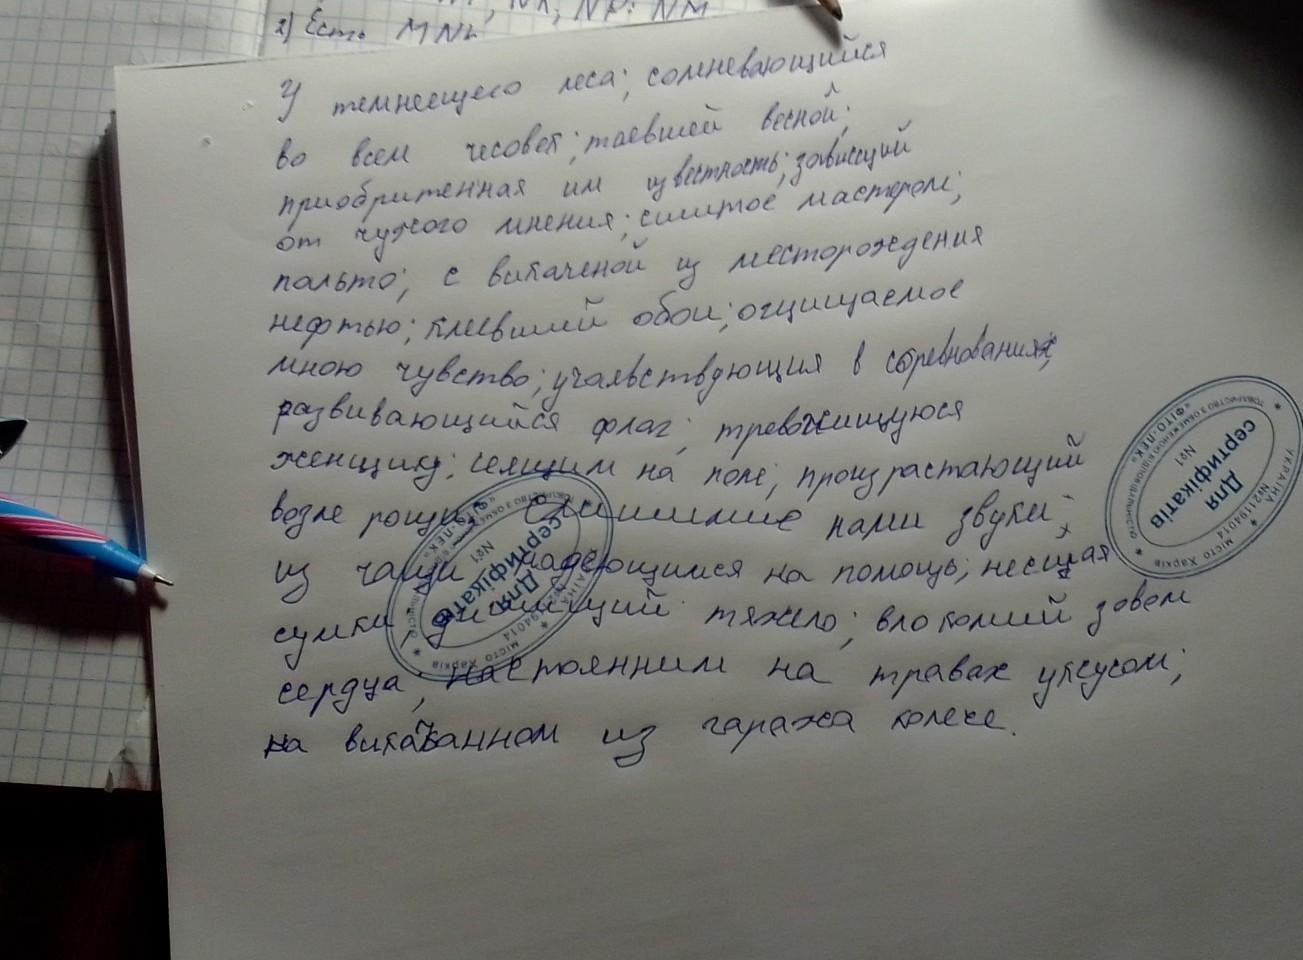 2) Есть MNK
У темнеещего леса; сомневающийся
во всем человек; таевшей весной;
приобритенная им известность; зависящий
от чужого мнения; сшитое мастером;
пальто; с викаченой из месторождения
нефтью; клеевший обои; огцищаемое
мною чувство; учавствдующия в соревнованиях;
развивающийся флаг; тревожищуюся
женщину; селщим на поле; произрастающий
возле рощи; Слишимие нами звуки
из чащи надеющимся на помощь; несищая
сумки дишищий тяжело; влокомий зовом
сердца; настоянним на травах уксусом;
на викатанном из гаража колесе.
Для сертифікатів №1
УКРАЇНА місто Харків №21194014
ТОВАРИСТВО З ОБМЕЖЕНОЮ ВІДПОВІДАЛЬНІСТЮ «ФІТО-ЛЕК»
Для сертифікатів №1
місто Харків
«ФІТО-ЛЕК»